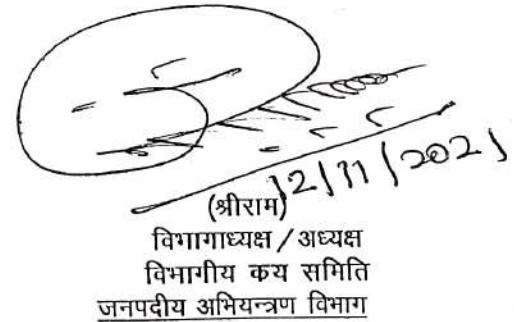 12/11/2021
(श्रीराम)
विभागाध्यक्ष / अध्यक्ष
विभागीय कय समिति
जनपदीय अभियन्त्रण विभाग